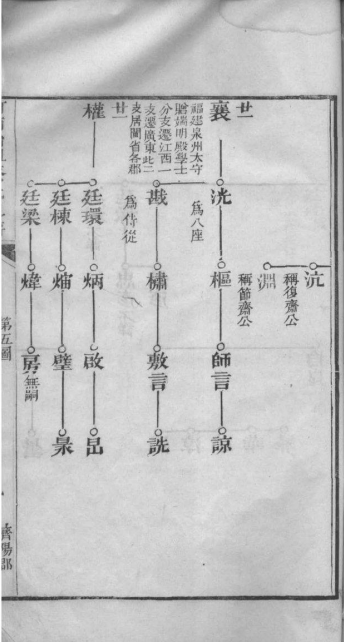 廿一
襄
福建泉州太守
贈端明殿學士
分支遷江西一
支遷廣東此二
支居閩省各郡
廿一
權
沆
稱復齋公
淵
稱節齋公
洸
為八座
戡
為侍從
廷環
廷棟
廷梁
樞
橚
炳
煒
師言
敷言
啟
璧
房無嗣
諒
詵
昌
第五圖
濟陽郡